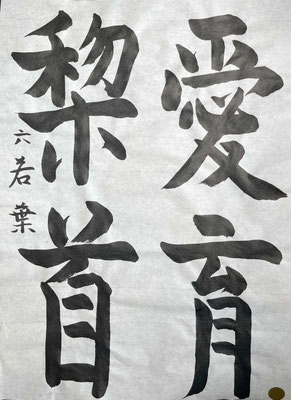 愛育
棃首
六若葉